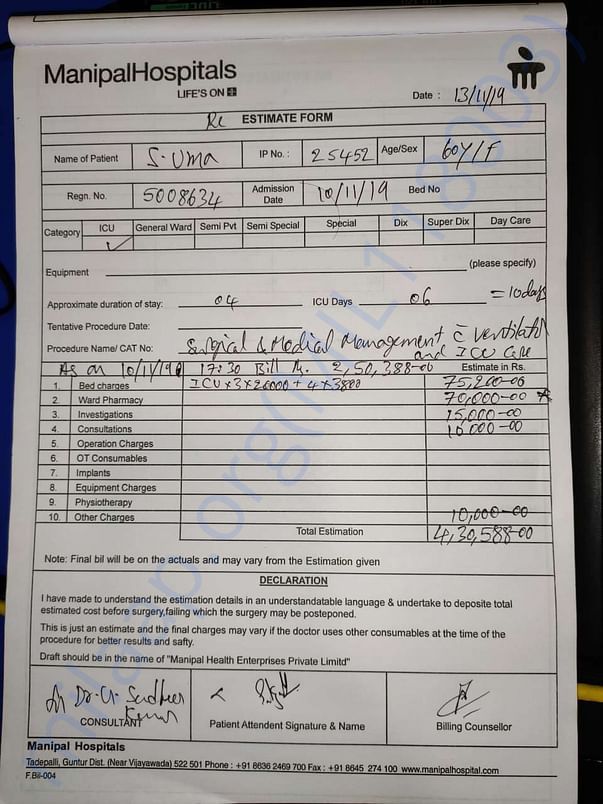 ManipalHospitals
LIFE'S ON
Date : 13/11/19
Re ESTIMATE FORM
Name of Patient S. Uma IP No. : 25452 Age/Sex 60Y/F
Regn. No. 5008634 Admission Date 10/11/19 Bed No
Category ICU General Ward Semi Pvt Semi Special Special Dix Super Dix Day Care
✓
Equipment (please specify)
Approximate duration of stay: 04 ICU Days 06 = 10 days
Tentative Procedure Date:
Procedure Name/ CAT No: Surgical & Medical Management c̄ ventilator
and ICU Care
As on 10/11/19 17:30 Bill Rs. 2,50,388-00 Estimate in Rs.
1. Bed charges ICU x 3 x 20000 + 4 x 3800 75,200-00
2. Ward Pharmacy 70,000-00
3. Investigations 15,000-00
4. Consultations 10 000-00
5. Operation Charges
6. OT Consumables
7. Implants
8. Equipment Charges
9. Physiotherapy
10. Other Charges 10,000-00
Total Estimation 4,30,588-00
Note: Final bil will be on the actuals and may vary from the Estimation given
DECLARATION
I have made to understand the estimation details in an understandatable language & undertake to deposite total
estimated cost before surgery,failing which the surgery may be posteponed.
This is just an estimate and the final charges may vary if the doctor uses other consumables at the time of the
procedure for better results and safty.
Draft should be in the name of "Manipal Health Enterprises Private Limitd"
Dr. G. Sudheer
Kumar
CONSULTANT Patient Attendent Signature & Name Billing Counsellor
Manipal Hospitals
Tadepalli, Guntur Dist. (Near Vijayawada) 522 501 Phone : +91 8636 2469 700 Fax : +91 8645 274 100 www.manipalhospital.com
F.Bil-004